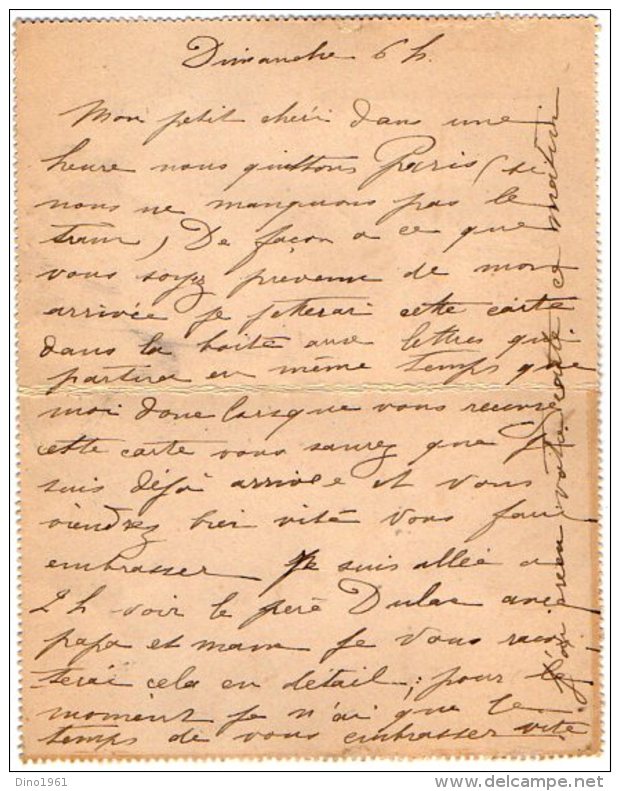 Dimanche 6 h.
Mon petit chéri dans une
heure nous quittons Paris (si
nous ne manquons pas le
train) De façon a ce que
vous soyez prevenu de mon
arrivée je jetterai cette carte
dans la boite aux lettres qui
partira en même temps que
moi donc lorsque vous recevrez
cette carte vous saurez que je
suis déjà arrivée et vous
viendrez bien vite vous faire
embrasser Je suis allée a
2 h voir le père Dulac avec
papa et mam je vous racon
terai cela en détail ; pour le
moment je n'ai que le
temps de vous embrasser vite
J'ai reçu votre carte ce matin
Dino1961
delcampe.net